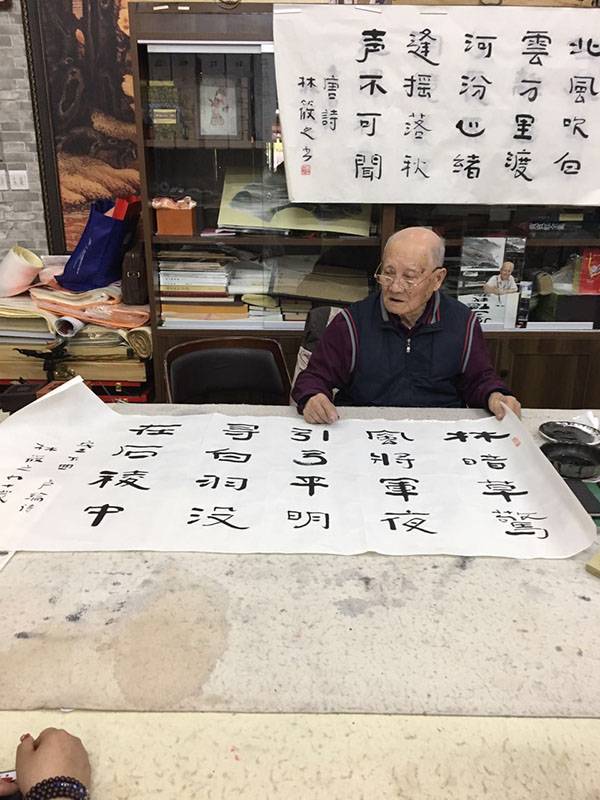 北風吹白
雲万里渡
河汾心緒
逢摇落秋
声不可聞
唐詩
林筱之书
林暗草驚
風將軍夜
引弓平明
寻白羽没
在石稜中
林筱之